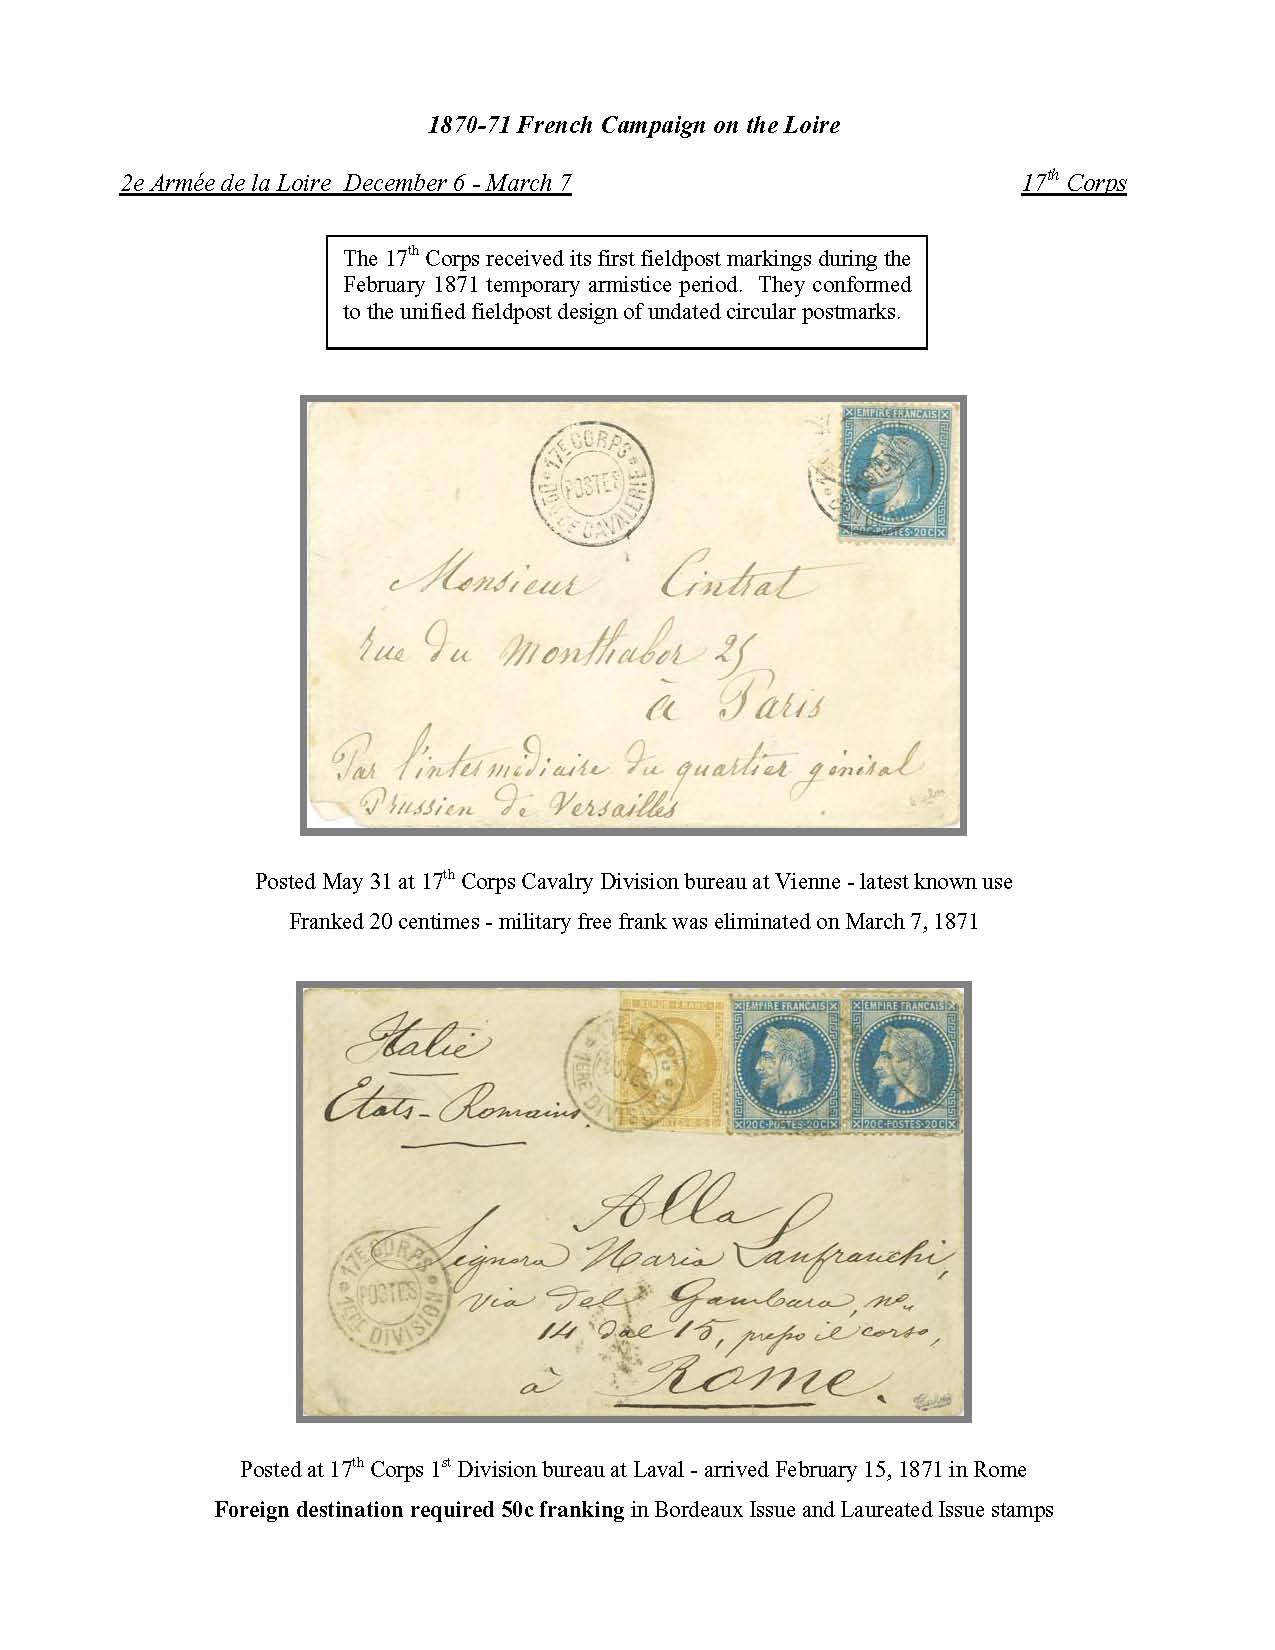 1870-71 French Campaign on the Loire
2e Armée de la Loire December 6 - March 7
17th Corps
The 17th Corps received its first fieldpost markings during the
February 1871 temporary armistice period. They conformed
to the unified fieldpost design of undated circular postmarks.
17E CORPS
POSTES
DON DE CAVALERIE
EMPIRE FRANCAIS
20C-POSTES-20C
Monsieur Cintrat
rue du Monthabor 25
à Paris
Par l'intermédiaire du quartier général
Prussien de Versailles
Posted May 31 at 17th Corps Cavalry Division bureau at Vienne - latest known use
Franked 20 centimes - military free frank was eliminated on March 7, 1871
Italie
Etats-Romains
17E CORPS
POSTES
1ERE DIVISION
REPUB FRANC
EMPIRE FRANCAIS
20C-POSTES-20C
EMPIRE FRANCAIS
20C-POSTES-20C
Alla
Signora Maria Lanfranchi,
via del Gambara, no.
14 dal 15, presso il corso,
à Rome.
17E CORPS
POSTES
1ERE DIVISION
Posted at 17th Corps 1st Division bureau at Laval - arrived February 15, 1871 in Rome
Foreign destination required 50c franking in Bordeaux Issue and Laureated Issue stamps